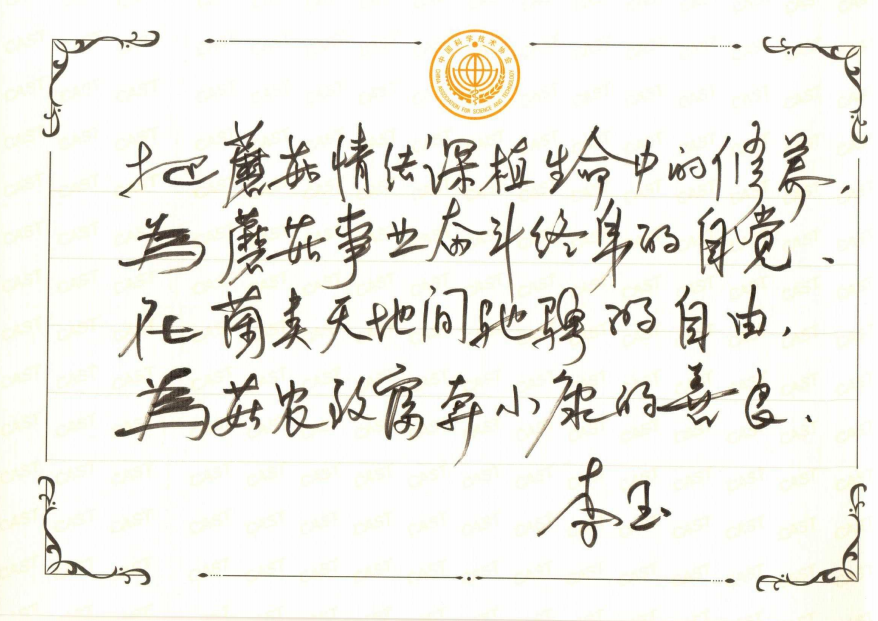 中国科学技术协会
CHINA ASSOCIATION FOR SCIENCE AND TECHNOLOGY
把蘑菇情结深植生命中的修养、
为蘑菇事业奋斗终身的自觉、
在菌类天地间驰骋的自由、
为菇农致富奔小康的善良、
李玉